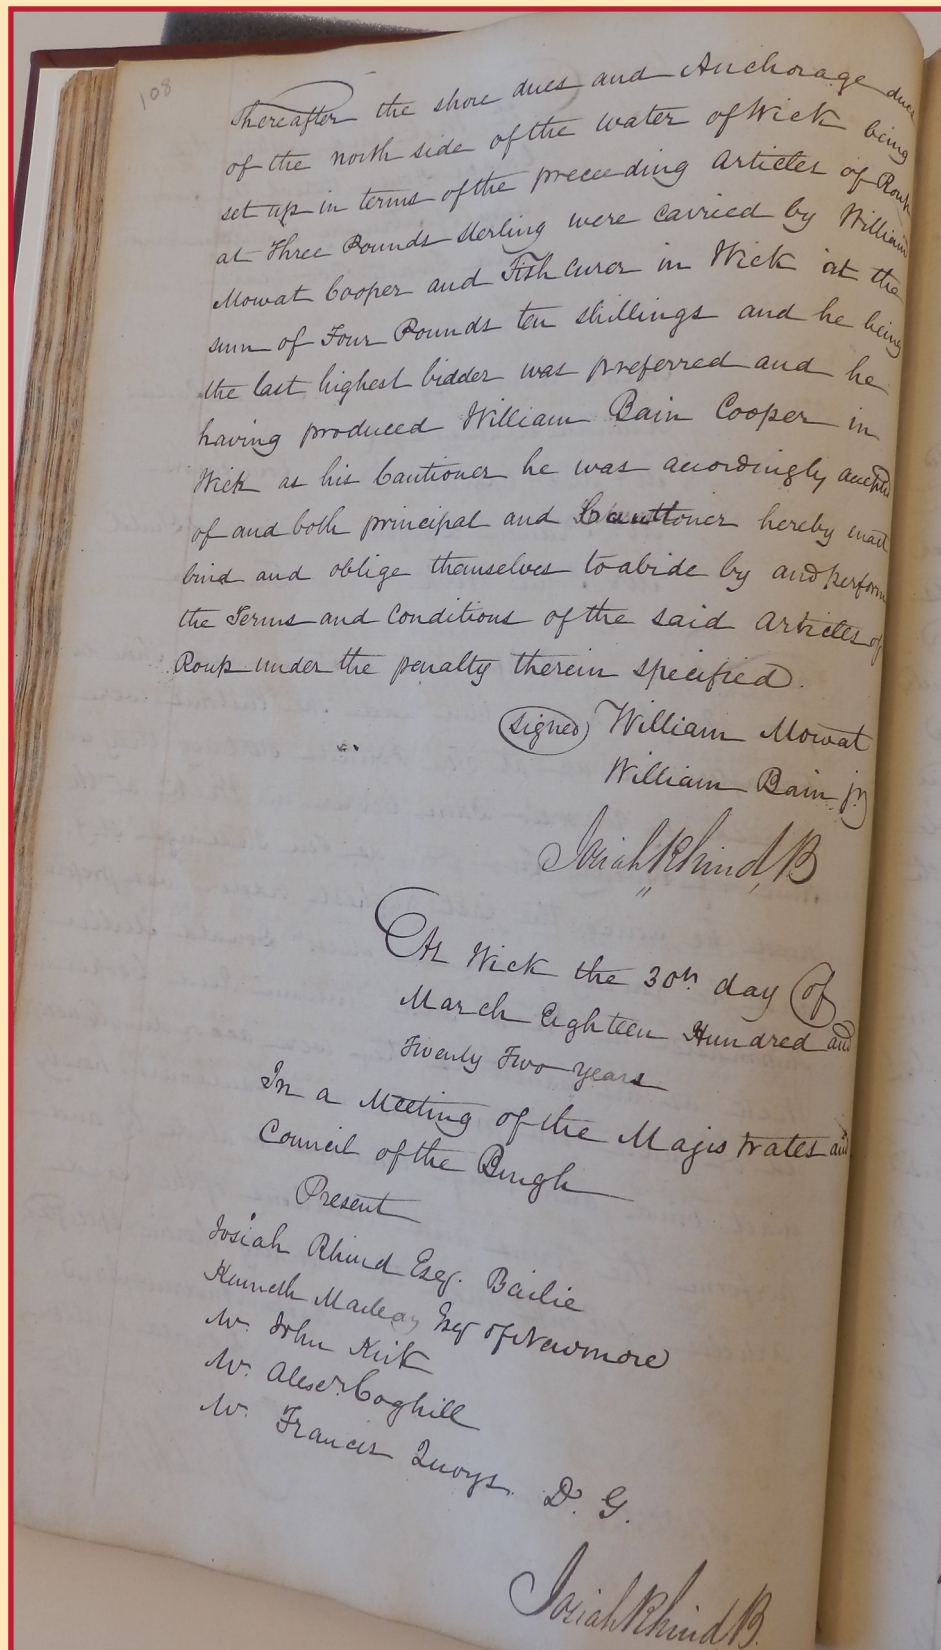 108
Thereafter the shore dues and Anchorage dues
of the north side of the water of Wick being
set up in terms of the preceeding Articles of Roup
at Three Pounds sterling were carried by William
Mowat Cooper and Fish Curer in Wick at the
sum of Four Pounds ten shillings and he being
the last highest bidder was preferred and he
having produced William Bain Cooper in
Wick as his Cautioner he was accordingly accepted
of and both principal and Cauttioner hereby enact
bind and oblige themselves to abide by and perform
the Terms and Conditions of the said Articles of
Roup under the penalty therein specified.
(Signed) William Mowat
William Bain jr
Josiah Rhind, B
At Wick the 30th day of
March Eighteen Hundred and
Twenty Two years
In a Meeting of the Magistrates and
Council of the Burgh
Present
Josiah Rhind Esqr. Bailie
Kenneth Macleay Esqr of Newmore
Mr. John Kirk
Mr. Alexr. Coghill
Mr. Francis Quoys. D. G.
Josiah Rhind B.